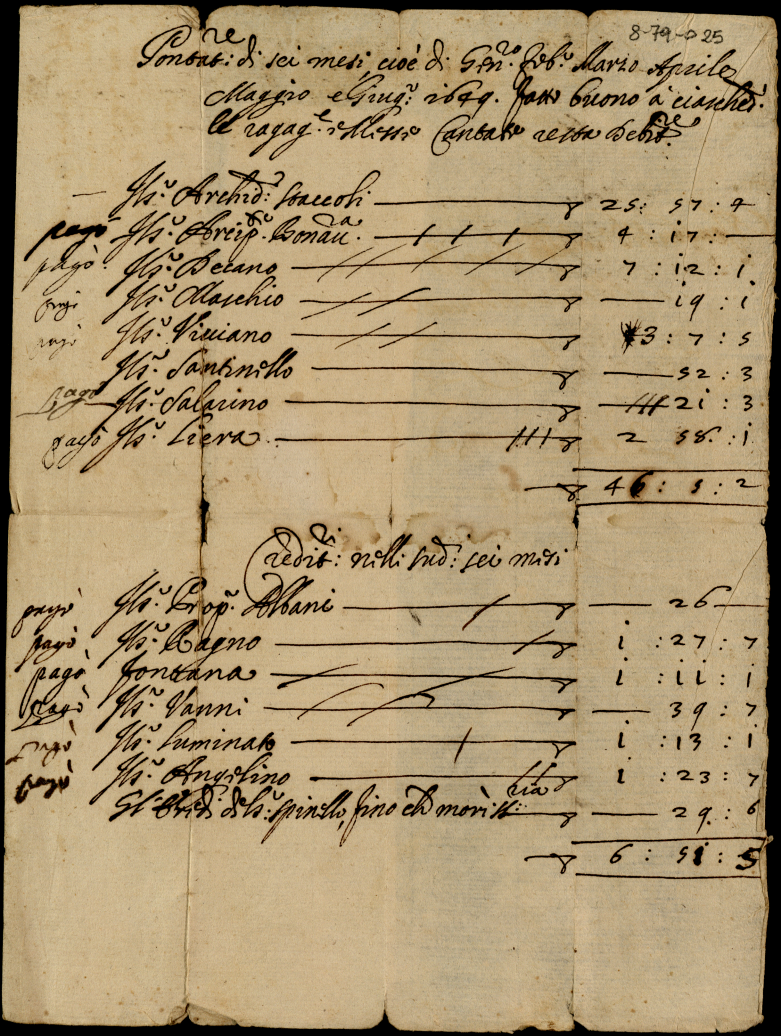 8-79-p 25
Pontat:re di sei mesi cioè di Gen:ro feb:o Marzo Aprile
Maggio e Giug:o 1649. fatto buono à ciasched:o
le ragag:e e Messe Cantate resta Debit:re
Il s:r Archid: Staccoli 25: 57: 4
pagò Il s:r Arcip:te Bonau:ra 4: 17:
pagò Il s:r Decano 7: 12: 1
pagò Il s:r Maschio 19: 1
pagò Il s:r Viviano 3: 7: 5
Il s:r Santinello 52: 3
pagò Il s:r Salarino 21: 3
pagò Il s:r Liera 2 58: 1
46: 5: 2
Credit:ri nelli sud:i sei mesi
pagò Il s:r Prop:o Albani 26
pagò Il s:r Ragno 1: 27: 7
pagò fontana 1: 11: 1
pagò Il s:r Vanni 39: 7
pagò Il s:r Luminato 1: 13: 1
pagò Il s:r Angelino 1: 23: 7
Gl' Eredi del s:r Spinello, fino che morì 29: 6
6: 51: 5